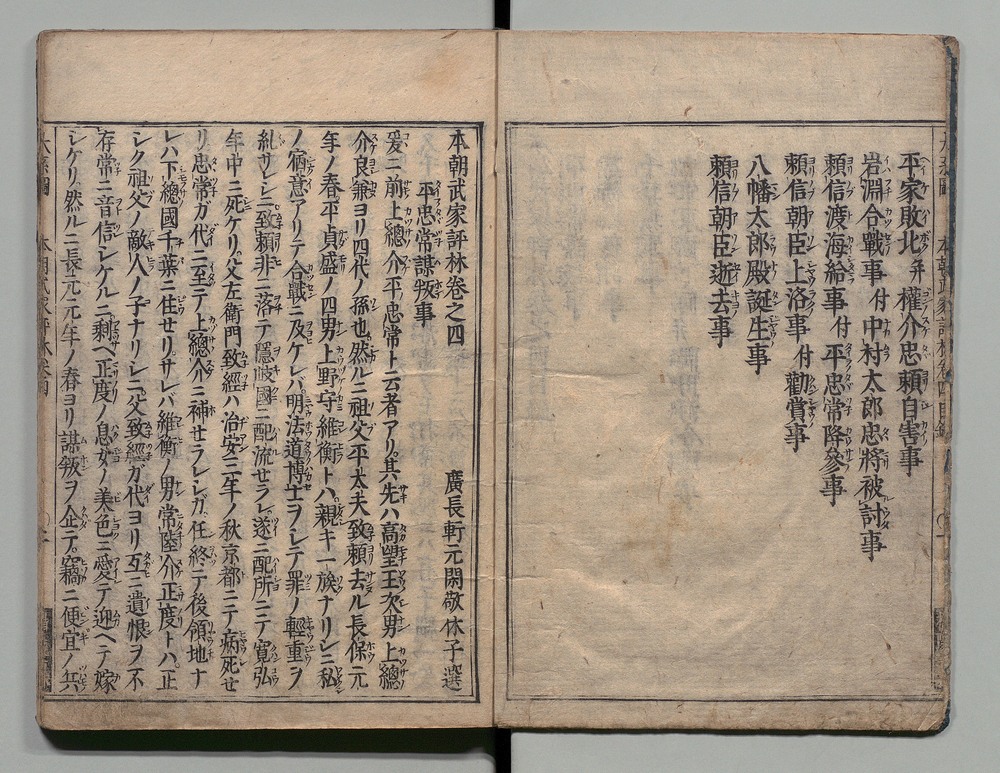 平家敗北并權介忠頼自害事
岩淵合戰事付中村太郎忠將被討事
頼信渡海給事付平忠常降參事
頼信朝臣上洛事付勸賞事
八幡太郎殿誕生事
頼信朝臣逝去事
本朝武家評林卷之四
廣長軒元閑敬休子選
平忠常謀叛事
爰ニ前上總介平忠常ト云者アリ其先ハ高望王次男上總
介良兼ヨリ四代ノ孫也然ルニ祖父平太夫致頼去ル長保元
年ノ春平貞盛ノ四男上野守維衡トハ親キ一族ナリシニ私
ノ宿意アリテ合戰ニ及ケレバ明法道博士ヲシテ罪ノ輕重ヲ
糺サレシニ致頼非ニ落テ隱岐國ニ配流セラレ遂ニ配所ニテ寛弘
年中ニ死ケリ父左衛門致經ハ治安三年ノ秋京都ニテ病死セ
リ忠常ガ代ニ至テ上總介ニ補セラレシガ任終テ後領地ナ
レハ下總國千葉ニ住セリサレバ維衡ノ男常陸介正度トハ正
シク祖父ノ敵人ノ子ナリシニ父致經ガ代ヨリ互ニ遺恨ヲ不
存常ニ音信シケルニ剩ヘ正度ノ息女ノ美色ニ愛テ迎ヘテ嫁
シケリ然ルニ長元元年ノ春ヨリ謀叛ヲ企テ竊ニ便宜ノ兵